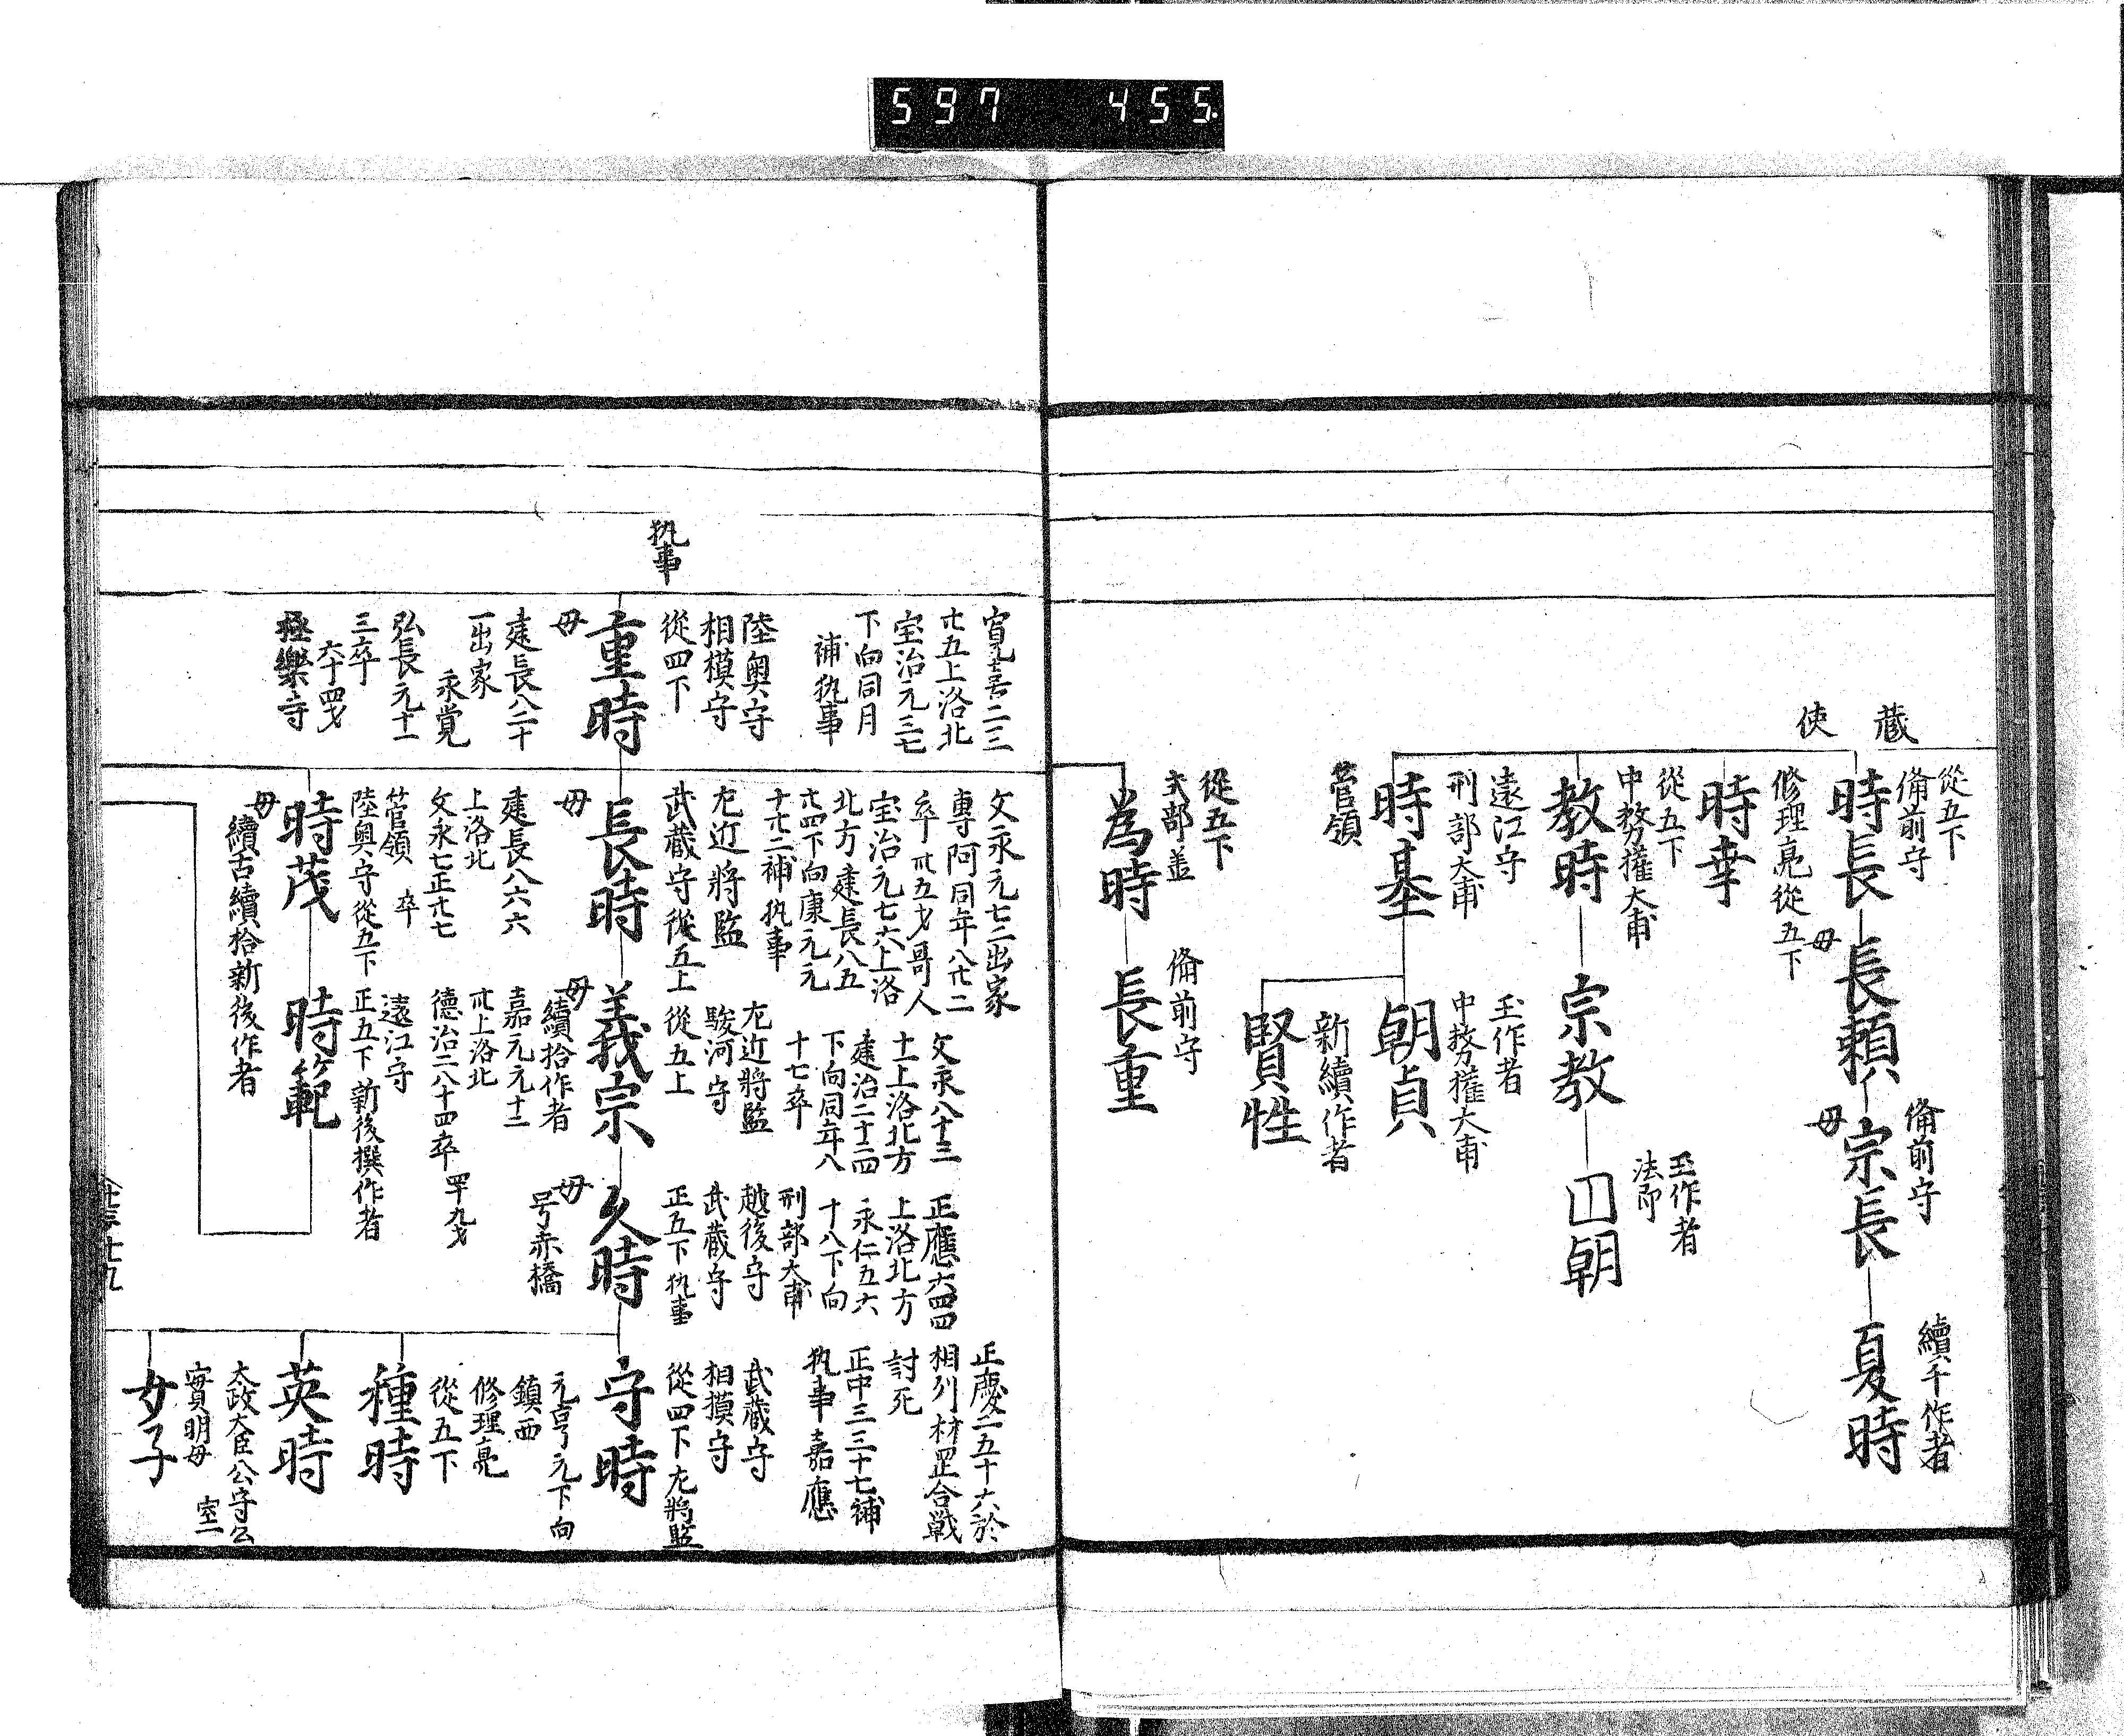 597 455
蔵
使
從五下
備前守
時長
母
長頼
備前守
母
宗長
續千作者
夏時
修理亮從五下
時幸
從五下
中務権大甫
教時
宗教
玉作者
法印
朝
遠江守
刑部大甫
時基
管領
玉作者
中務権大甫
朝貞
新續作者
賢性
從五下
式部
為時
備前守
長重
執事
寛喜二三
廿五上洛北
宝治元三七
下向同月
補執事
陸奥守
相模守
從四下
重時
母
建長八三十
一出家
永覚
弘長元十一
三卒
六十四才
極樂寺
文永元七二出家
専阿同年八廿二
卒卅五才哥人
宝治元七六上洛
北方建長八五
廿四下向康元元
十廿二補執事
左近将監
武蔵守從五上
長時
母
建長八六六
上洛北
文永七正廿七
管領 卒
陸奥守從五下
時茂
母
續古續拾新後作者
文永八十三
十上洛北方
建治二十二四
下向同年八
十七卒
左近将監
駿河守
從五上
義宗
母
續拾作者
嘉元元十二
卅上洛北
德治二八十四卒 四十九才
遠江守
正五下新後撰作者
時範
正應六四四
上洛北方
永仁五六
十八下向
刑部大甫
越後守
武蔵守
正五下執事
久時
母
号赤橋
正慶二五十六於
相州
合戦
討死
正中三三十七補
執事嘉應
武蔵守
相摸守
從四下左将監
守時
元亨元下向
鎮西
修理亮
從五下
種時
英時
太政大臣公守公
實明母
室一
女子